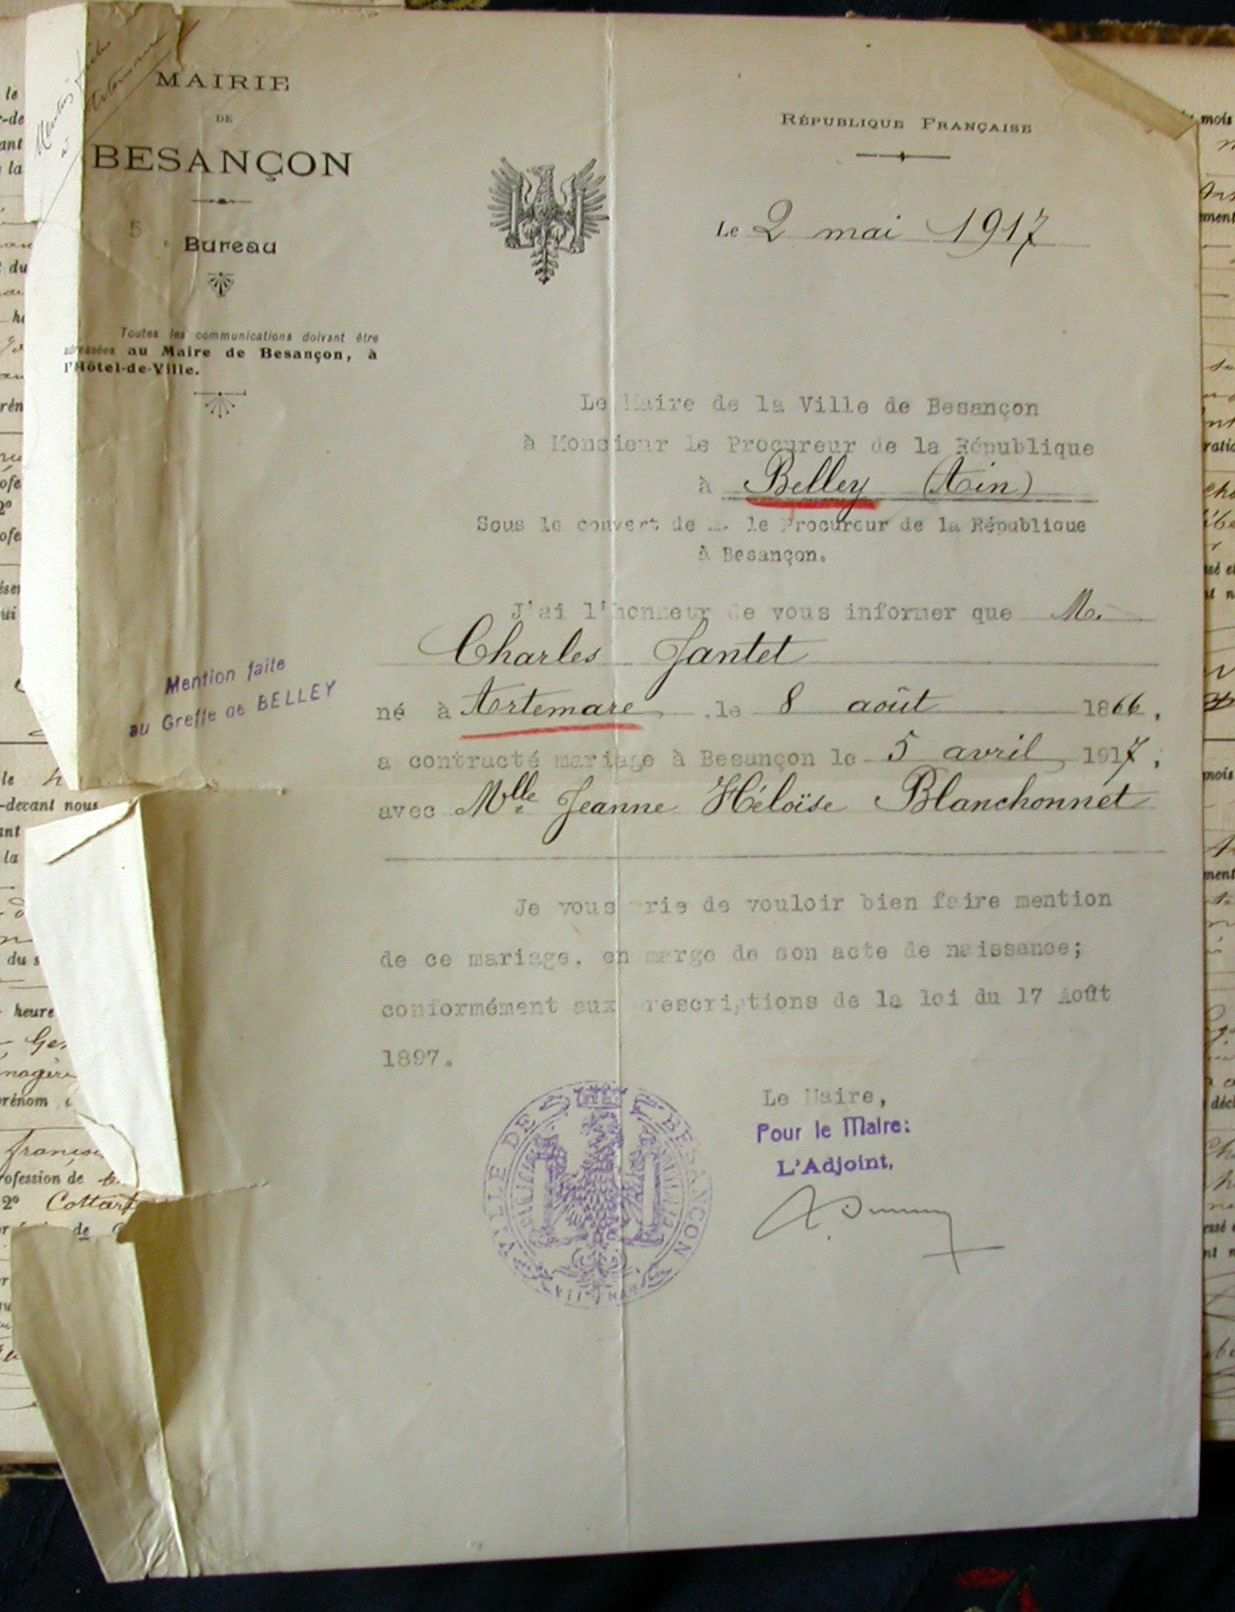 Mention faite
à Artemare
MAIRIE
DE
BESANÇON
5 . Bureau
Toutes les communications doivent être
adressées au Maire de Besançon, à
l'Hôtel-de-Ville.
RÉPUBLIQUE FRANÇAISE
Le 2 mai 1917
Le Maire de la Ville de Besançon
à Monsieur le Procureur de la République
à Belley (Ain)
Sous le couvert de M. le Procureur de la République
à Besançon.
J'ai l'honneur de vous informer que M.
Charles Jantet
né à Artemare .le 8 août 1866.
a contracté mariage à Besançon le 5 avril 1917;
avec Mlle Jeanne Héloïse Blanchonnet
Mention faite
au Greffe de BELLEY
Je vous prie de vouloir bien faire mention
de ce mariage, en marge de son acte de naissance;
conformément aux prescriptions de la loi du 17 Août
1897.
Le Maire,
Pour le Maire:
L'Adjoint,
VILLE DE BESANÇON
-devant nous
la
du
heure
prénom
françois
profession de
2° Cottar
de
mois